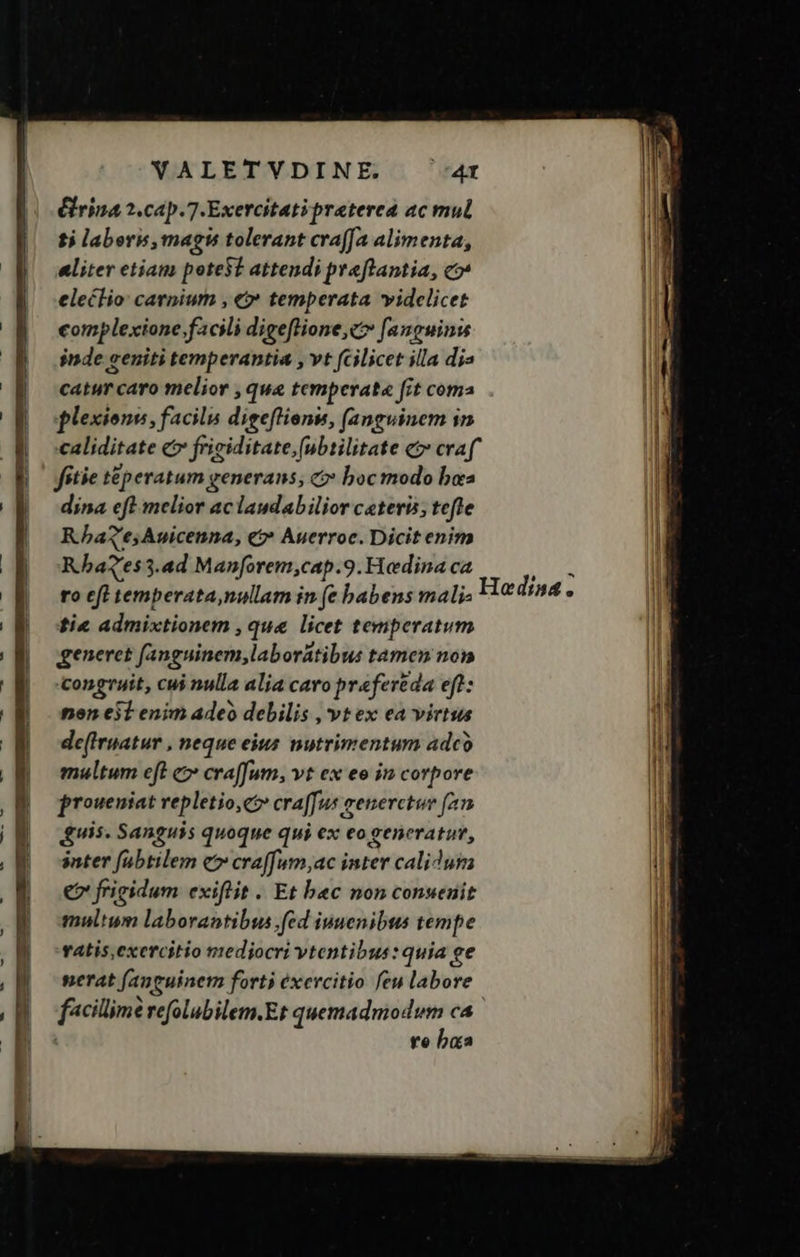 VALETVDINE. 41
ctrina 2.cap.7.Exercitati præterea ac mul
ti laboris, magis tolerant crassa alimenta,
aliter etiam potest attendi præstantia, &
electio carnium, & temperata videlicet
complexione, facili digestione, & sanguinis
inde geniti temperantia, vt scilicet illa di-
catur caro melior, quæ temperatæ sit com-
plexionis, facilis digestionis, sanguinem in
caliditate & frigiditate, subtilitate & cras
sitie tēperatum generans, & hoc modo hœ-
dina est melior ac laudabilior cæteris, teste
Rhaze, Auicenna, & Auerroe. Dicit enim
Rhazes 3.ad Mansorem, cap.9. Hœdina ca
ro est temperata, nullam in se habens mali-
Hœdina.
tiæ admixtionem, quæ licet temperatum
generet sanguinem, laborātibus tamen non
congruit, cui nulla alia caro præferēda est:
non est enim adeò debilis, vt ex ea virtus
destruatur, neque eius nutrimentum adeò
multum est & crassum, vt ex eo in corpore
proueniat repletio, & crassus generetur san
guis. Sanguis quoque qui ex eo generatur,
inter subtilem & crassum, ac inter calidum
& frigidum existit. Et hæc non conuenit
multum laborantibus, sed iuuenibus tempe
ratis, exercitio mediocri vtentibus: quia ge
nerat sanguinem forti exercitio seu labore
facillimè resolubilem. Et quemadmodum ca
ro hœ-